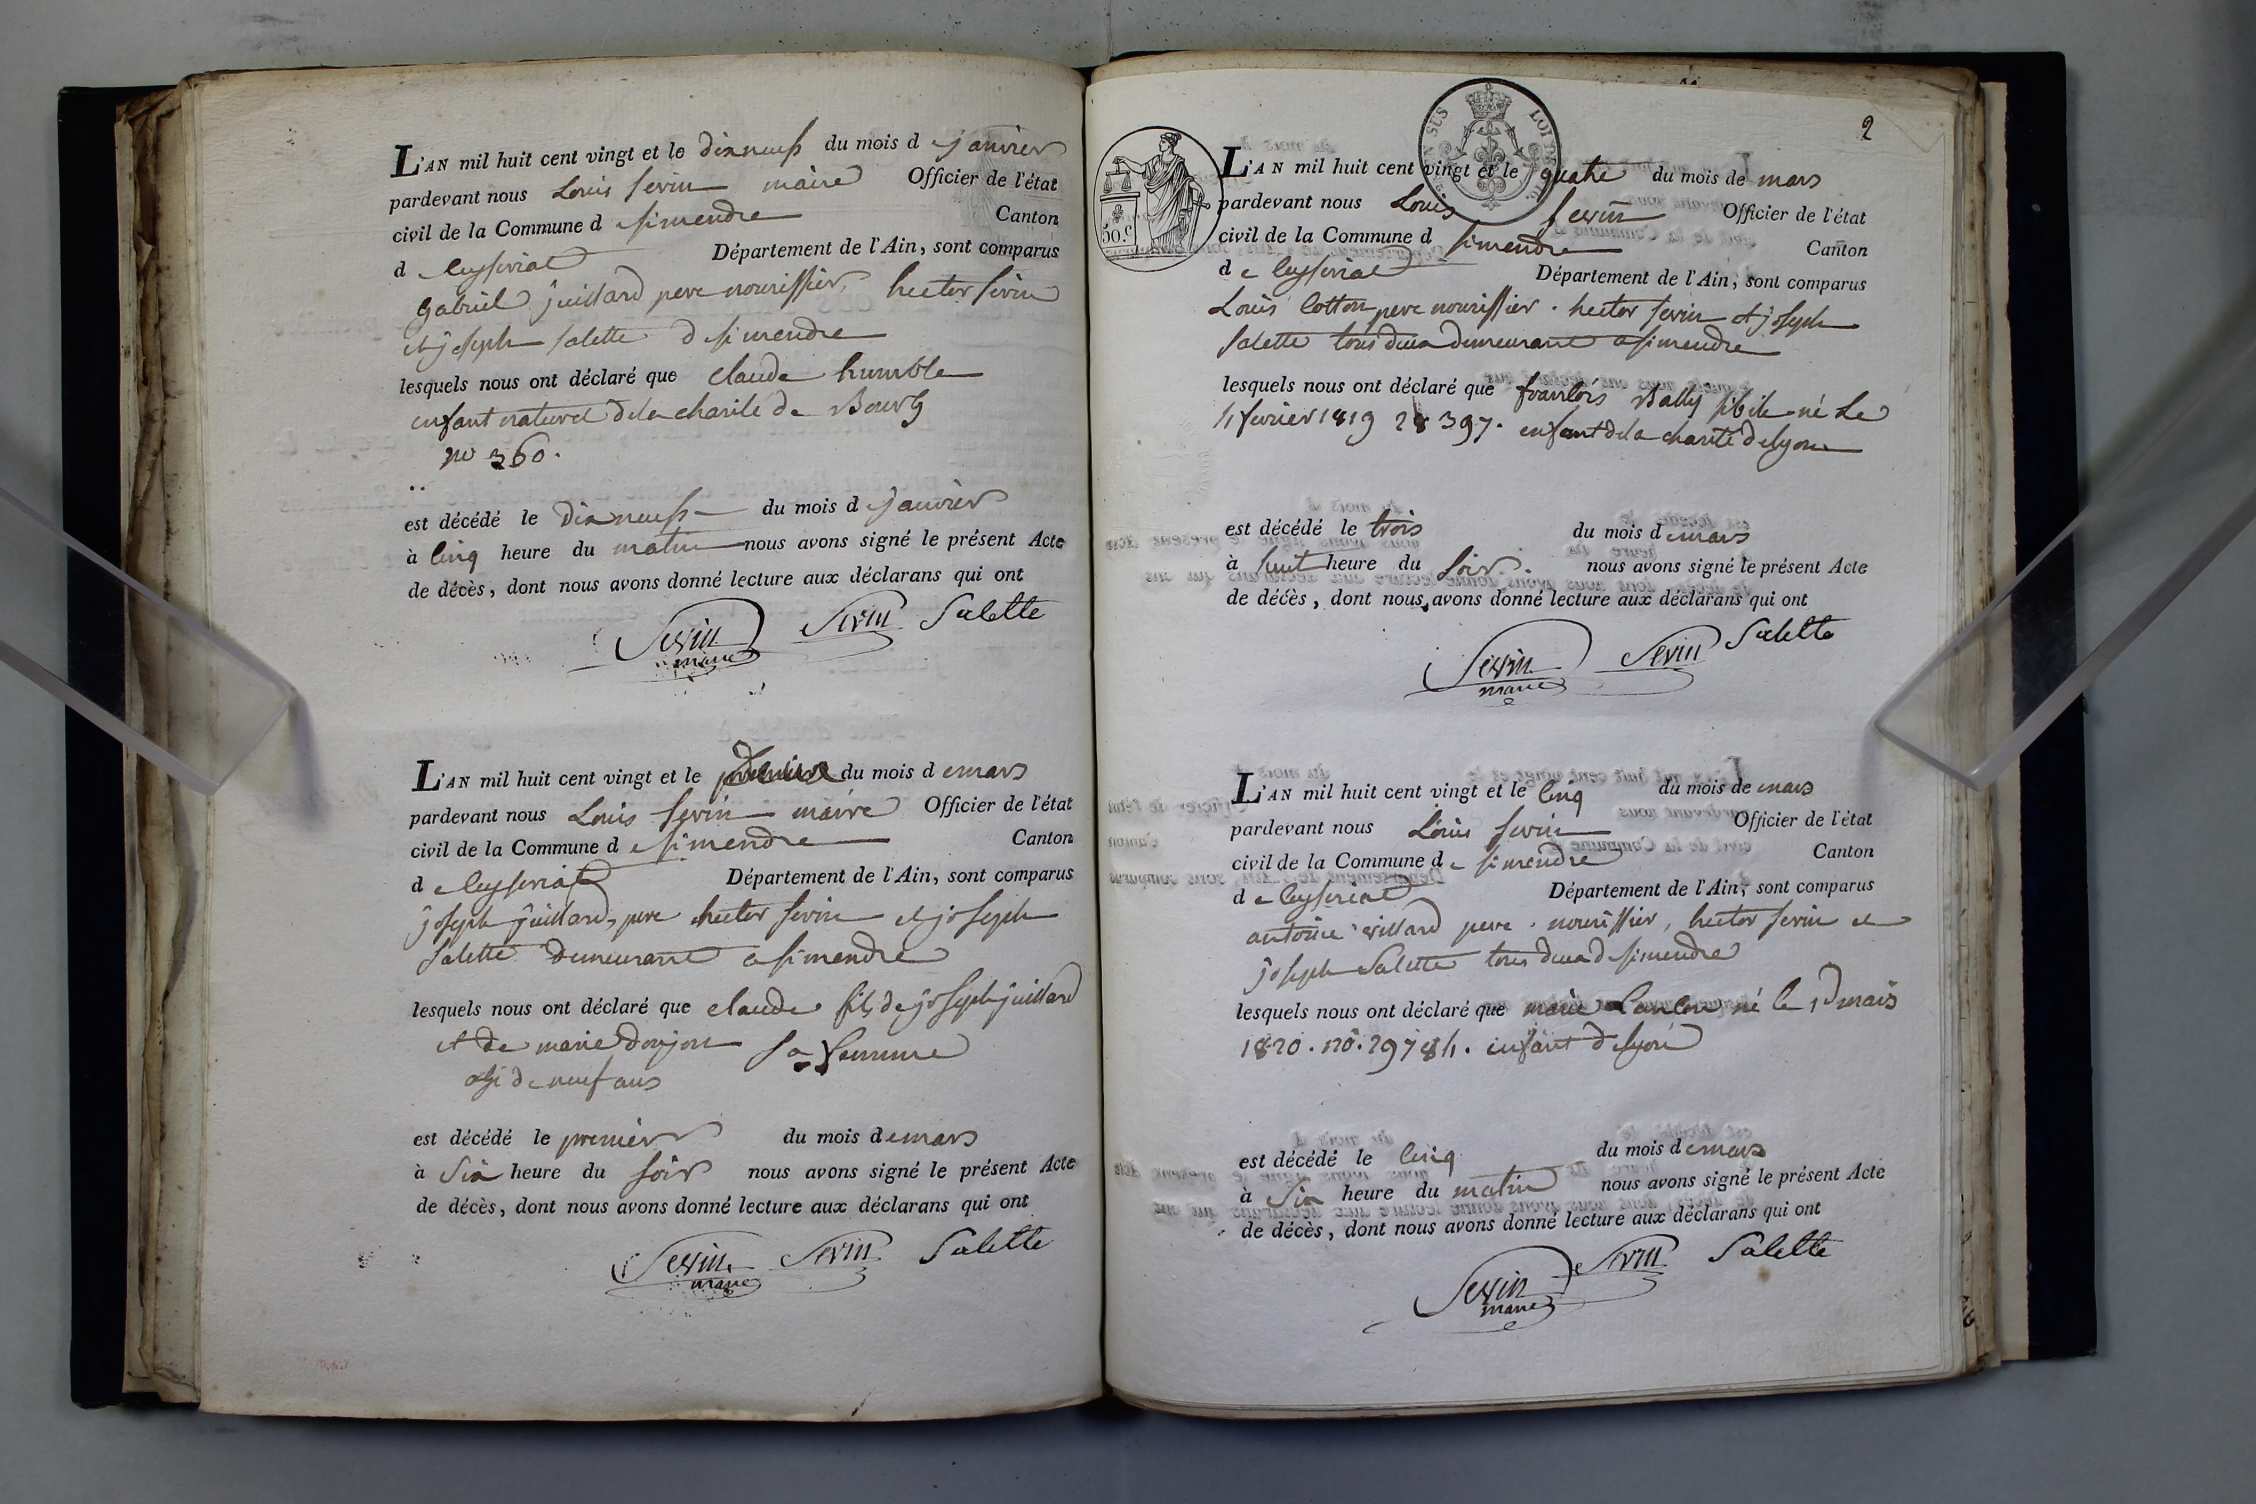 L'AN mil huit cent vingt et le dixneuf du mois d e janvier
pardevant nous Louis Sevin maire Officier de l'état
civil de la Commune d e Simendre Canton
d e Ceyseriat Département de l'Ain, sont comparus
Gabriel juillard pere nourissier, hector Sevin
et joseph Salette d Simendre
lesquels nous ont déclaré que claude humble
enfant naturel de la charité de Bourg
no 360.
est décédé le dixneuf du mois d e janvier
à cinq heure du matin nous avons signé le présent Acte
de décès, dont nous avons donné lecture aux déclarans qui ont
Sevin Sevin Salette
maire
L'AN mil huit cent vingt et le du mois d e mars
pardevant nous Louis Sevin maire Officier de l'état
civil de la Commune d e Simendre Canton
d e Ceyseriat Département de l'Ain, sont comparus
joseph juillard, pere hector Sevin et joseph
Salette demeurant a Simendre
lesquels nous ont déclaré que claude fils de joseph juillard
et de marie donjon sa femme
agé de neuf ans
est décédé le premier du mois d e mars
à Six heure du soir nous avons signé le présent Acte
de décès, dont nous avons donné lecture aux déclarans qui ont
Sevin Sevin Salette
maire
2
50.c
L'AN mil huit cent vingt et le quatre du mois de mars
pardevant nous Louis Sevin Officier de l'état
civil de la Commune d Simendre Canton
d e Ceyseriat Département de l'Ain, sont comparus
Louis Cotton pere nourissier. hector Sevin et joseph
Salette tous deux demeurant a Simendre
lesquels nous ont déclaré que né Le
fevrier 1819 397. enfant de la charité de lyon
est décédé le trois du mois d e mars
à huit heure du soir. nous avons signé le présent Acte
de décès, dont nous avons donné lecture aux déclarans qui ont
Sevin Sevin Salette
maire
L'AN mil huit cent vingt et le cinq du mois de mars
pardevant nous Louis Sevin Officier de l'état
civil de la Commune d e Simendre Canton
d e Ceyseriat Département de l'Ain, sont comparus
antoine villard pere nourissier, hector Sevin et
joseph Salette tous deux d Simendre
lesquels nous ont déclaré que marie né le mars
1820. no. 29784. enfant de lyon
est décédé le cinq du mois d e mars
à Six heure du matin nous avons signé le présent Acte
de décès, dont nous avons donné lecture aux déclarans qui ont
Sevin Sevin Salette
maire